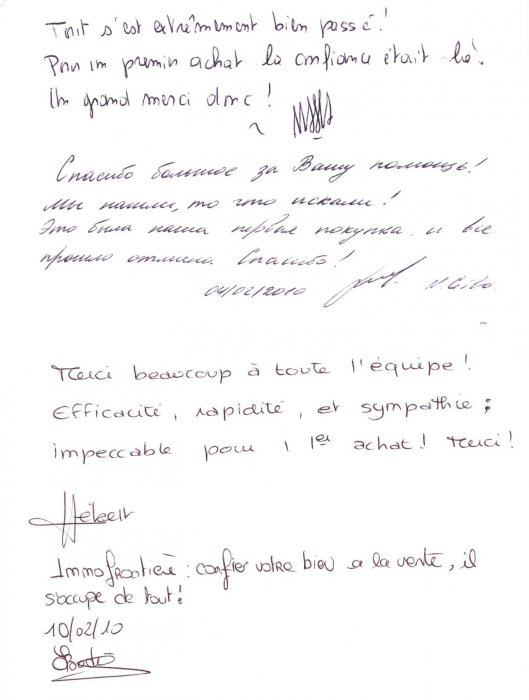 Tout s'est extrêmement bien passé!
Pour un premier achat la confiance était là.
Un grand merci donc!
Спасибо большое за Вашу помощь!
Мы нашли, то что искали!
Это была наша первая покупка и всё
прошло отлично. Спасибо!
04/02/2010
Merci beaucoup à toute l'équipe!
Efficacité, rapidité, et sympathie;
impeccable pour 1 1er achat! Merci!
Immofrontière: confier votre bien a la vente, il
s'occupe de tout!
10/02/10